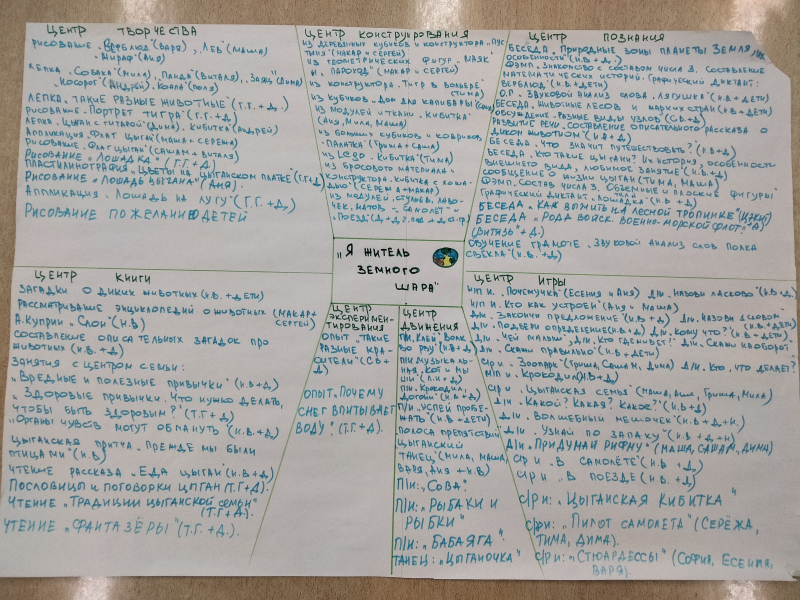 Центр творчества
рисование „Верблюд" (Варя), „Лев" (Маша)
„Жираф" (Аня)
лепка „Собака" (Мила), „Панда" (Виталя), „Заяц" (Дима)
„Носорог" (Андрей), „Коала" (Юля)
лепка „Такие разные животные" (Т.Г.+Д.)
рисование „Портрет тигра" (Г.Г.+Д)
лепка „Цыган с гитарой" (Дима), „Кибитка" (Андрей)
Аппликация „Флаг цыган" (Маша+Сережа)
рисование „Флаг цыган" (СашаМ+Виталя)
Рисование „Лошадка" (Т.Г.+Д)
Пластилинография „Цветы на цыганском платке" (Т.Г+Д)
Рисование „Лошадь цыгана" (Аня).
Аппликация „Лошадь на лугу" (Т.Г.+Д)
Рисование по желанию детей
Центр конструирования
из деревянных кубиков и конструктора „Пус
тыня" (Макар и Сергей)
из геометрических фигур „Маяк
и пароход" (Макар и Сергей)
из конструктора „Тигр в вольере"
(Тима)
из кубиков „Дом для капибары"
из модулей и ткани „Кибитка"
(Аня, Мила, Маша)
из больших кубиков и ковриков
„Палатка" (Гриша+Саша)
из Lego „Кибитка" (Тима)
из бросового материала и
конструктора „Кибитка с лоша-
дью" (Сережа+Макар)
из модулей, стульев, лаво-
чек, матов – „Самолёт" и
„Поезд"
Центр познания
Беседа „Природные зоны планеты Земля, их
особенности" (Н.В+Д)
ФЭМП „Знакомство с составом числа 3. Составление
математических историй. Графический диктант:
верблюд" (Н.В+Дети)
О.Г. Звуковой анализ слова „Лягушка" (Н.В+Дети)
Беседа „Животные лесов и жарких стран" (Н.В+Дети)
Обсуждение „Разные виды узлов" (С.В+Д)
Развитие речи „Составление описательного рассказа о
диком животном" (Н.В+Д)
Беседа „Что значит путешествовать?" (Н.В+Д)
Беседа „Кто такие цыгане? Их история, особенности
внешнего вида, любимое занятие" (Н.В+Д)
Сообщение о жизни цыган (Тима, Маша)
ФЭМП „Состав числа 3. Объемные и плоские фигуры"
Графический диктант „Лошадка" (Н.В+Д)
Беседа „Как выжить на лесной тропинке"
Беседа „Рода войск. Военно-морской флот"
(Витязь"+Д.)
Обучение грамоте. Звуковой анализ слов полка
свёкла (Н.В.+Д)
„Я житель
земного
шара"
Центр книги
Загадки о диких животных (Н.В.+Дети)
Рассматривание энциклопедий о животных (Макар+
Сергей)
А. Куприн „Слон" (Н.В)
Составление описательных загадок про
животных (Н.В.+Д)
Занятия с центром семьи:
„Вредные и полезные привычки" (Н.В+Д)
„Здоровые привычки. Что нужно делать,
чтобы быть здоровым?" (Т.Г+Д)
„Органы чувств могут обмануть" (Н.В.+Д)
Цыганская притча „Прежде мы были
птицами" (Н.В)
Чтение рассказа „Еда цыган" (Н.В+Д)
Пословицы и поговорки цыган (Т.Г+Д).
Чтение „Традиции цыганской семьи"
(Т.Г+Д).
Чтение „Фантазёры" (Т.Г.+Д.).
Центр
эксперимен-
тирования
Опыт „Такие
разные кра-
сители" (С.В+
Д)
Опыт „Почему
снег впитывает
воду?" (Т.Г.+Д).
Центр
движения
П/и „Клей Волко
во рву" (Н.В+Д)
П/и Музыкаль-
ная „Кот и мы
ши"
П/и „Крокодил,
догони" (Н.В+Д)
П/и „Успей пробе-
жать" (Н.В+Дети)
Полоса препятствий
Цыганский
танец (Мила, Маша,
Варя, Аня+Н.В)
П/и: „Сова"
П/и: „Рыбаки и
рыбки"
П/и: „Бабаяга"
Танец: „Цыганочка"
Центр игры
Н/п и „Почемучка" (Есения и Аня) Д/и „Назови ласково" (Н.В+Д)
Н/п и „Кто как устроен" (Аня и Маша)
Д/и „Закончи предложение" (Н.В+Д) Д/и „Назови 1 словом"
Д/и „Подбери определение" (Н.В+Д) Д/и „Кому что?" (Н.В+Дети)
Д/и „Чей малыш", Д/и „Кто где живёт?" Д/и „Скажи наоборот"
Д/и „Скажи правильно" (Н.В+Дети)
С/р и „Зоопарк" (Гриша, СашаМ, Дима) Д/и „Кто, что делает?"
М/п и „Крокодил" (Н.В+Д)
С/р и „Цыганская семья" (Маша, Аня, Гриша, Мила)
Д/и „Какой? Какая? Какое?" (Н.В+Д)
Д/и „Волшебный мешочек" (Н.В+Д+Н)
Д/и „Узнай по запаху" (Н.В+Д+Н)
Д/и „Придумай рифму" (Маша, СашаМ, Дима)
С/р и „В самолёте" (Н.В+Д)
С/р и „В поезде" (Н.В.+Д)
С/р и: „Цыганская кибитка"
С/ри: „Пилот самолета" (Серёжа,
Тима, Дима).
С/ри: „Стюардессы" (София, Есения,
Варя).